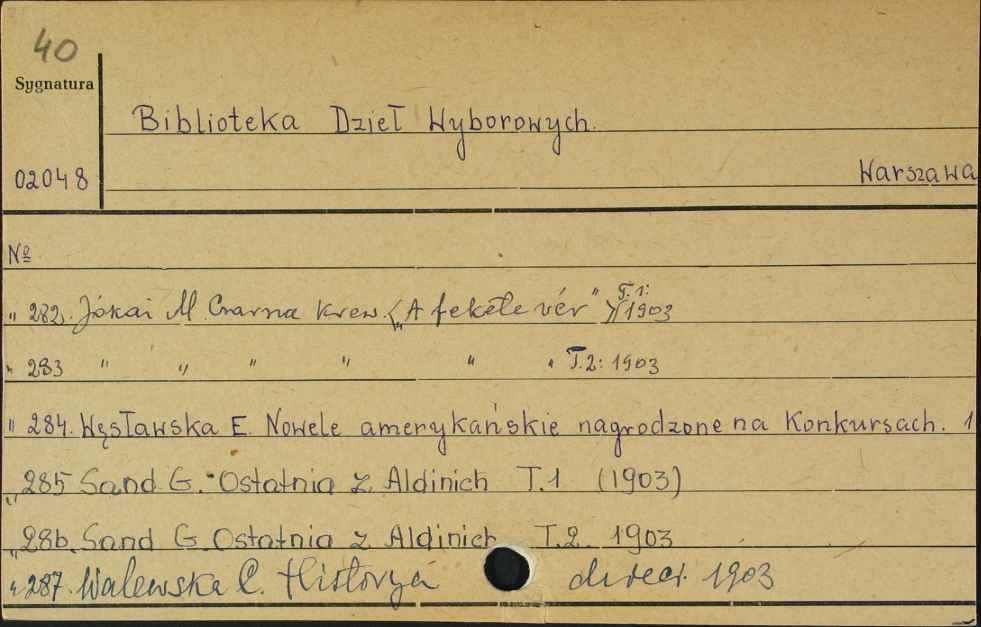 40
Sygnatura
Biblioteka Dzieł Wyborowych.
02048
Warszawa
Nº
" 282. Jókai M. Czarna Krew ("A fekete vér") T.1: 1903
" 283 " " " " " " T.2: 1903
" 284. Węsławska E. Nowele amerykańskie nagrodzone na Konkursach. 1
" 285 Sand G. Ostatnia z Aldinich T.1 (1903)
" 286. Sand G. Ostatnia z Aldinich T.2. 1903
" 287. Walewska C. Historya dzieci. 1903